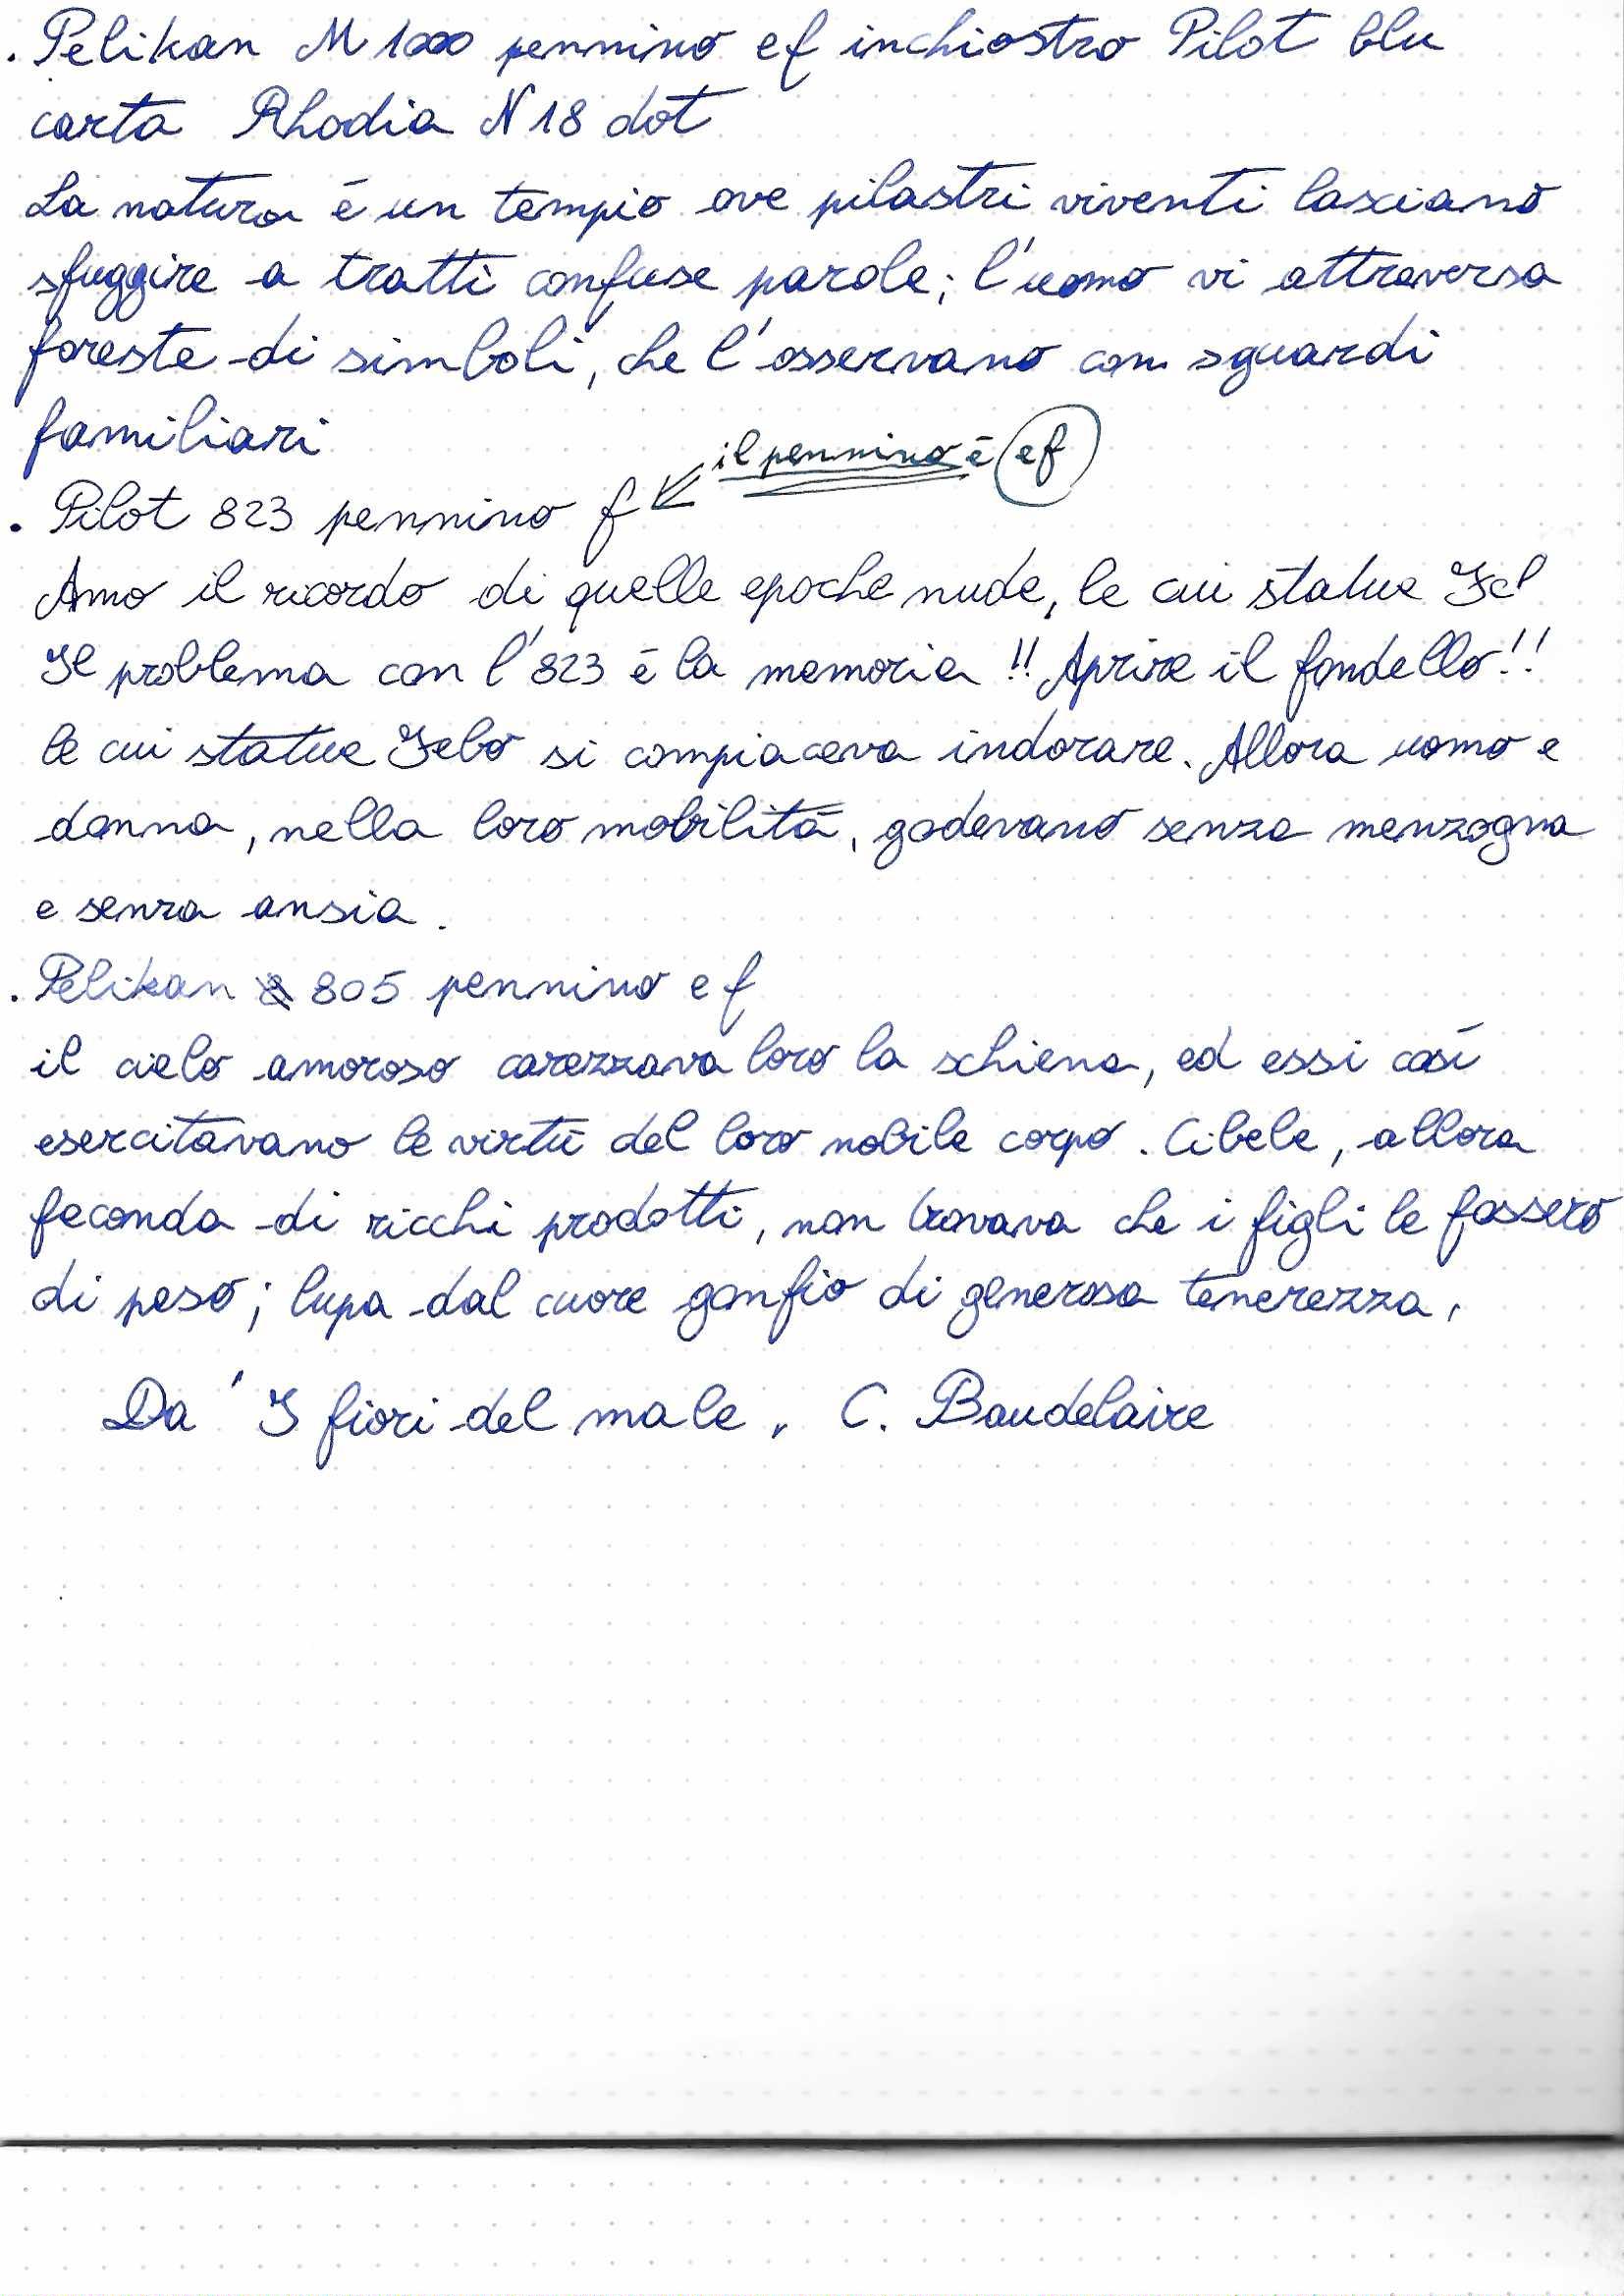 . Pelikan M 1000 pennino ef inchiostro Pilot blu
carta Rhodia N 18 dot
La natura é un tempio ove pilastri viventi lasciano
sfuggire a tratti confuse parole; l'uomo vi attraversa
foreste di simboli, che l'osservano con sguardi
familiari
il pennino é ef
. Pilot 823 pennino f
Amo il ricordo di quelle epoche nude, le cui statue Fel
Il problema con l'823 é la memoria !! Aprire il fondello!!
le cui statue Febo si compiaceva indorare. Allora uomo e
donna, nella loro mobilitá, godevano senza menzogna
e senza ansia.
. Pelikan 805 pennino ef
il cielo amoroso carezzava loro la schiena, ed essi cosí
esercitavano le virtú del loro nobile corpo. Cibele, allora
feconda di ricchi prodotti, non trovava che i figli le fossero
di peso; lupa dal cuore gonfio di generosa tenerezza,
Da ' I fiori del male, C. Baudelaire